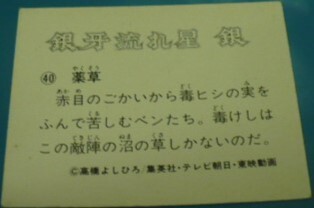 銀牙流れ星 銀
㊵ 薬草
赤目のごかいから毒ヒシの実を
ふんで苦しむベンたち。毒けしは
この敵陣の沼の草しかないのだ。
©高橋よしひろ/集英社・テレビ朝日・東映動画